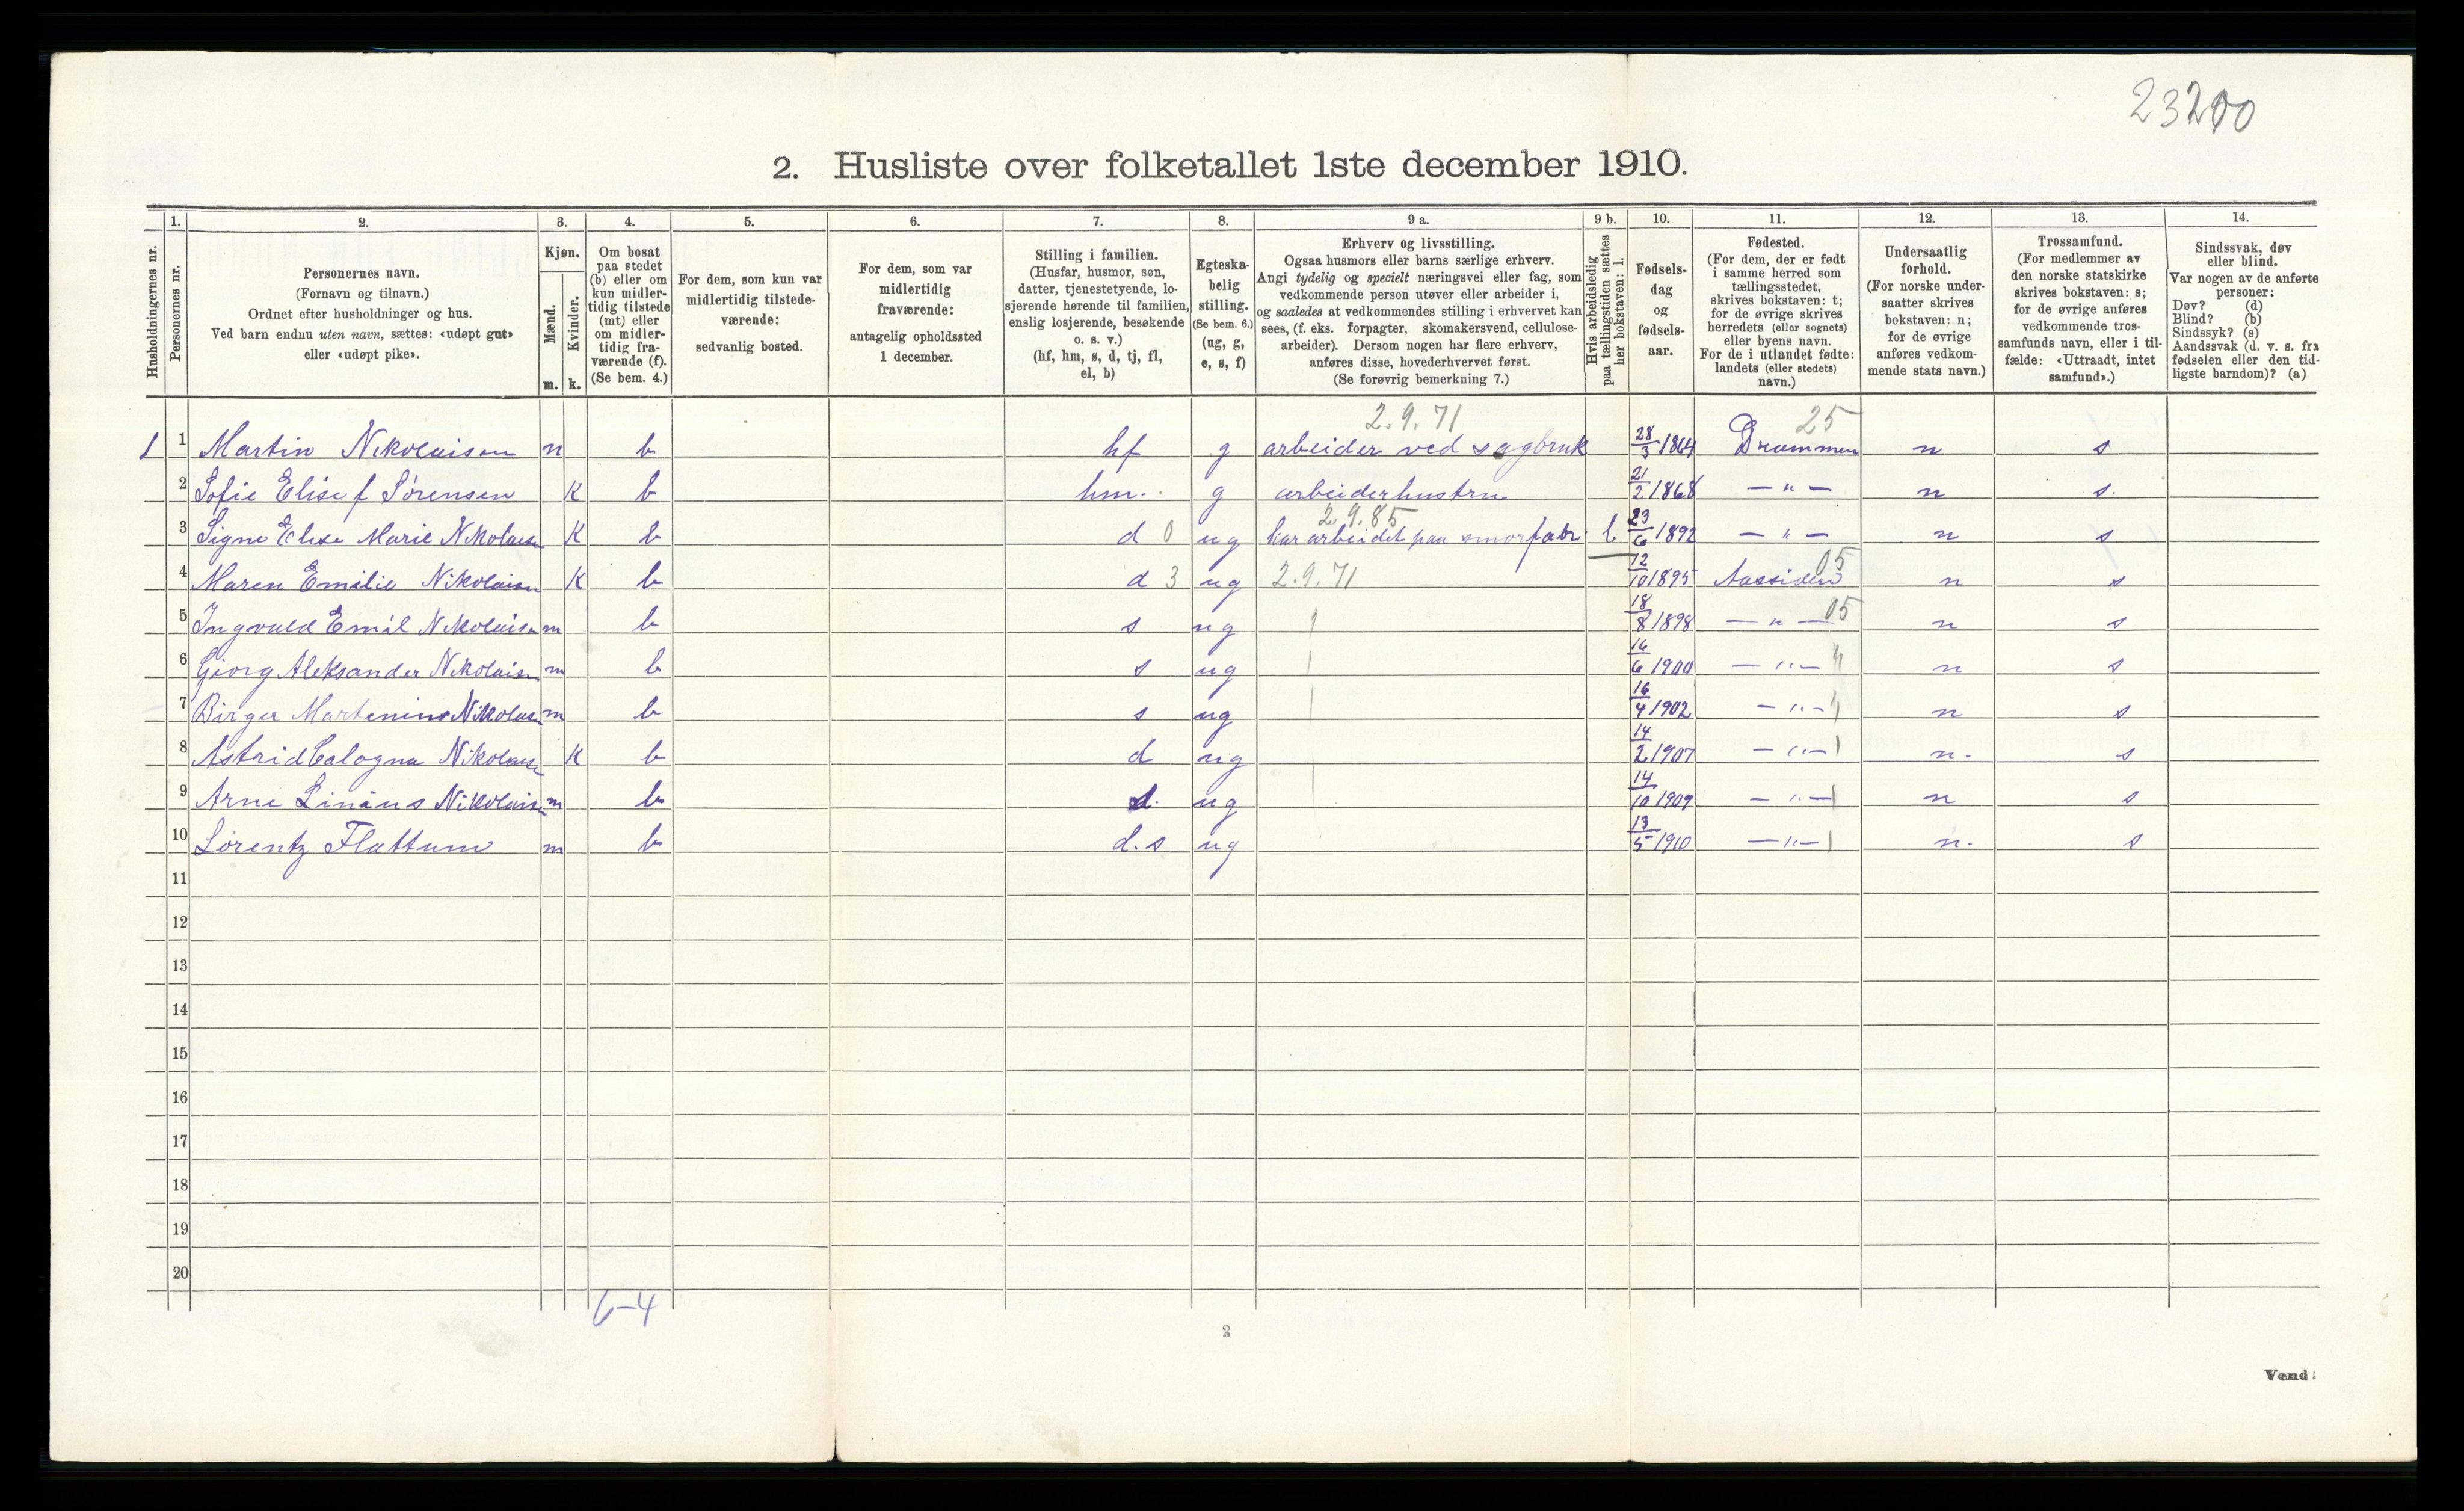 23200
2. Husliste over folketallet 1ste december 1910.
Husholdningernes nr.
1.
Personernes nr.
2.
Personernes navn.
(Fornavn og tilnavn.)
Ordnet efter husholdninger og hus.
Ved barn endnu uten navn, sættes: «udøpt gut»
eller «udøpt pike».
3.
Kjøn.
Mænd.
m.
Kvinder.
k.
4.
Om bosat
paa stedet
(b) eller om
kun midler-
tidig tilstede
(mt) eller
om midler-
tidig fra-
værende (f).
(Se bem. 4.)
5.
For dem, som kun var
midlertidig tilstede-
værende:
sedvanlig bosted.
6.
For dem, som var
midlertidig
fraværende:
antagelig opholdssted
1 december.
7.
Stilling i familien.
(Husfar, husmor, søn,
datter, tjenestetyende, lo-
sjerende hørende til familien,
enslig losjerende, besøkende
o. s. v.)
(hf, hm, s, d, tj, fl,
el, b)
8.
Egteska-
belig
stilling.
(Se bem. 6.)
(ug, g,
e, s, f)
9 a.
Erhverv og livsstilling.
Ogsaa husmors eller barns særlige erhverv.
Angi tydelig og specielt næringsvei eller fag, som
vedkommende person utøver eller arbeider i,
og saaledes at vedkommendes stilling i erhvervet kan
sees, (f. eks. forpagter, skomakersvend, cellulose-
arbeider). Dersom nogen har flere erhverv,
anføres disse, hovederhvervet først.
(Se forøvrig bemerkning 7.)
9 b.
Hvis arbeidsledig
paa tællingstiden sættes
her bokstaven: l.
10.
Fødsels-
dag
og
fødsels-
aar.
11.
Fødested.
(For dem, der er født
i samme herred som
tællingsstedet,
skrives bokstaven: t;
for de øvrige skrives
herredets (eller sognets)
eller byens navn.
For de i utlandet fødte:
landets (eller stedets)
navn.)
12.
Undersaatlig
forhold.
(For norske under-
saatter skrives
bokstaven: n;
for de øvrige
anføres vedkom-
mende stats navn.)
13.
Trossamfund.
(For medlemmer av
den norske statskirke
skrives bokstaven: s;
for de øvrige anføres
vedkommende tros-
samfunds navn, eller i til-
fælde: «Uttraadt, intet
samfund».)
14.
Sindssvak, døv
eller blind.
Var nogen av de anførte
personer:
Døv? (d)
Blind? (b)
Sindssyk? (s)
Aandssvak (d. v. s. fra
fødselen eller den tid-
ligste barndom)? (a)
2.9.71 25
1 1 Martin Nikolaisen m b hf g arbeider ved sagbruk 28/3 1864 Drammen n s
2 Sofie Elise f Sørensen K b hm. g arbeiderhustru 21/2 1868 — " — n s.
2.9.85
3 Signe Elise Marie Nikolaisen K b d 0 ug har arbeidet paa smørfabr. l 23/6 1892 — " — n s
4 Maren Emilie Nikolaisen K b d 3 ug 2.9.71 12/10 1895 Aassiden 05 n s
5 Ingvald Emil Nikolaisen m b s ug 18/8 1898 — " — 05 n s
6 Georg Aleksander Nikolaisen m b s ug 16/6 1900 — " — n s
7 Birger Martenius Nikolaisen m b s ug 16/4 1902 — " — n s
8 Astrid Calogna Nikolaisen K b d ug 14/2 1907 — " — n. s
9 Arne Linäus Nikolaisen m b s. ug 14/10 1909 — " — n s
10 Lorentz Flattum m b d.s ug 13/5 1910 — " — n. s
11
12
13
14
15
16
17
18
19
20
6–4
2
Vend!